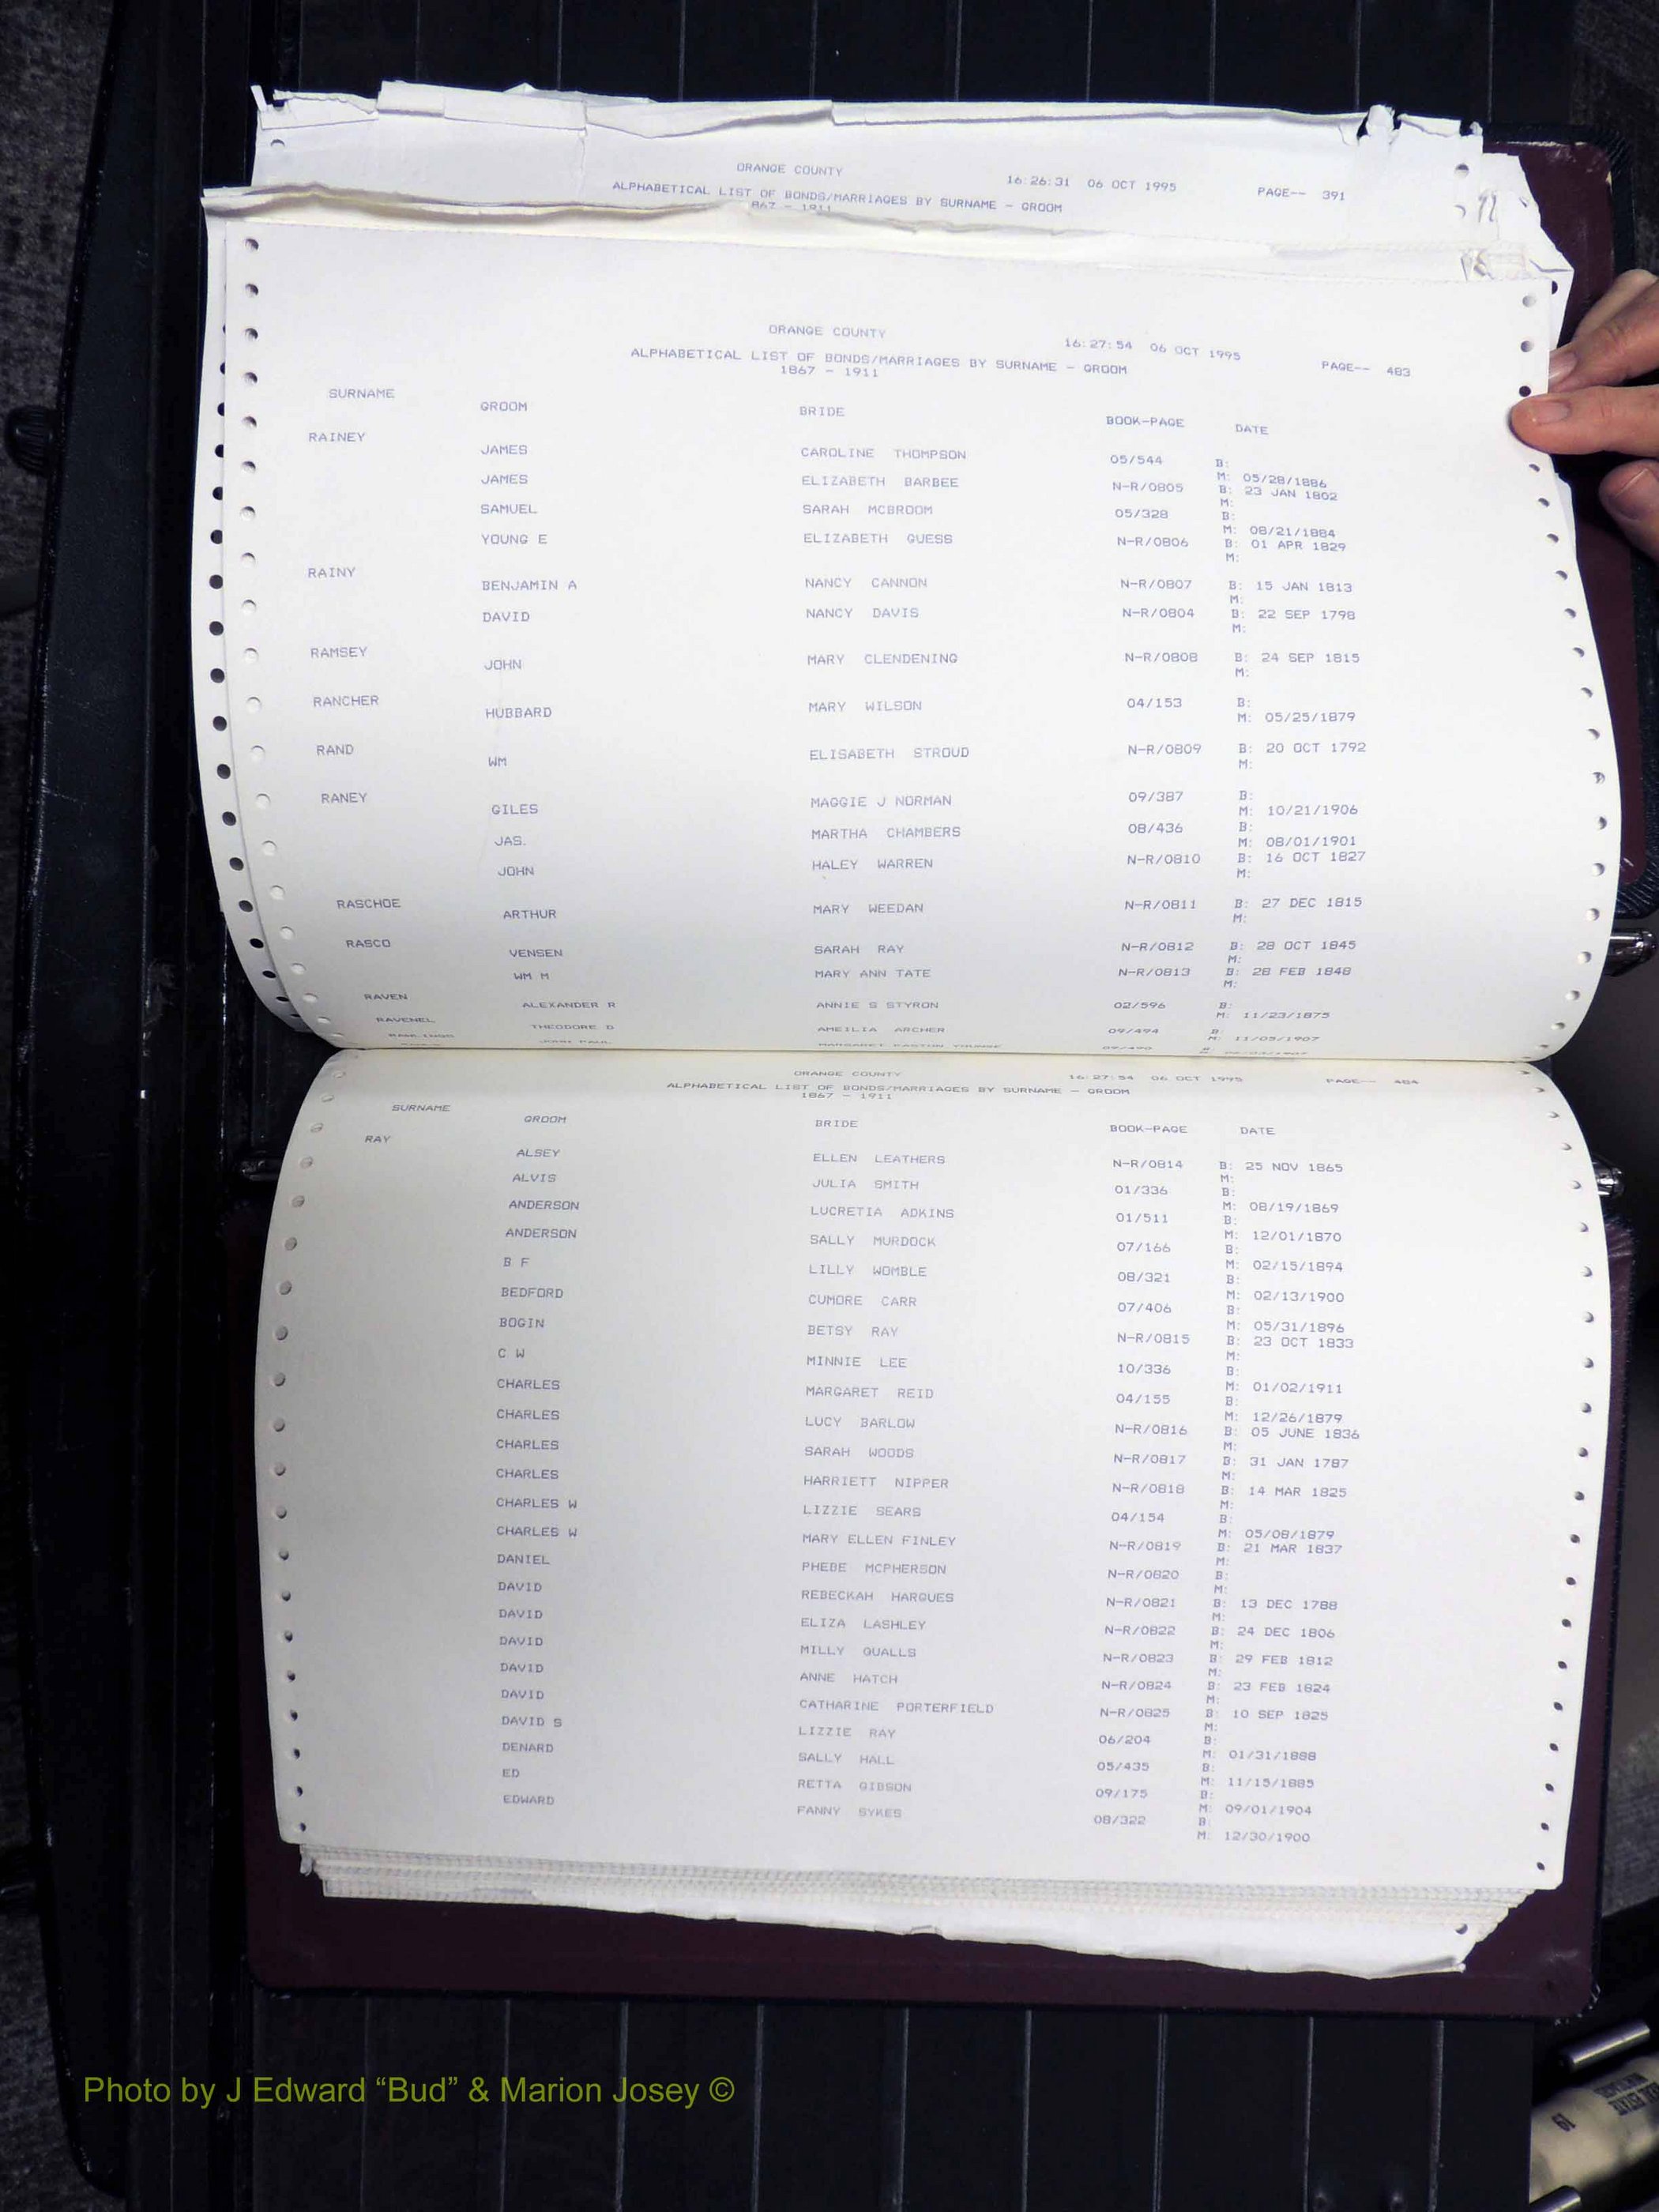 ORANGE COUNTY 16:26:31 06 OCT 1995 PAGE-- 391
ALPHABETICAL LIST OF BONDS/MARRIAGES BY SURNAME - GROOM
867 - 1911
ORANGE COUNTY 16:27:54 06 OCT 1995 PAGE-- 483
ALPHABETICAL LIST OF BONDS/MARRIAGES BY SURNAME - GROOM
1867 - 1911
SURNAME GROOM BRIDE BOOK-PAGE DATE
RAINEY JAMES CAROLINE THOMPSON 05/544 B:
M: 05/28/1886
JAMES ELIZABETH BARBEE N-R/0805 B: 23 JAN 1802
M:
SAMUEL SARAH MCBROOM 05/328 B:
M: 08/21/1884
YOUNG E ELIZABETH GUESS N-R/0806 B: 01 APR 1829
M:
RAINY BENJAMIN A NANCY CANNON N-R/0807 B: 15 JAN 1813
M:
DAVID NANCY DAVIS N-R/0804 B: 22 SEP 1798
M:
RAMSEY JOHN MARY CLENDENING N-R/0808 B: 24 SEP 1815
M:
RANCHER HUBBARD MARY WILSON 04/153 B:
M: 05/25/1879
RAND WM ELISABETH STROUD N-R/0809 B: 20 OCT 1792
M:
RANEY GILES MAGGIE J NORMAN 09/387 B:
M: 10/21/1906
JAS. MARTHA CHAMBERS 08/436 B:
M: 08/01/1901
JOHN HALEY WARREN N-R/0810 B: 16 OCT 1827
M:
RASCHOE ARTHUR MARY WEEDAN N-R/0811 B: 27 DEC 1815
M:
RASCO VENSEN SARAH RAY N-R/0812 B: 28 OCT 1845
M:
WM M MARY ANN TATE N-R/0813 B: 28 FEB 1848
M:
RAVEN ALEXANDER R ANNIE S STYRON 02/596 B:
M: 11/23/1875
RAVENEL THEODORE D AMEILIA ARCHER 09/494 B:
M: 11/05/1907
ORANGE COUNTY 16:27:54 06 OCT 1995 PAGE-- 484
ALPHABETICAL LIST OF BONDS/MARRIAGES BY SURNAME - GROOM
1867 - 1911
SURNAME GROOM BRIDE BOOK-PAGE DATE
RAY ALSEY ELLEN LEATHERS N-R/0814 B: 25 NOV 1865
M:
ALVIS JULIA SMITH 01/336 B:
M: 08/19/1869
ANDERSON LUCRETIA ADKINS 01/511 B:
M: 12/01/1870
ANDERSON SALLY MURDOCK 07/166 B:
M: 02/15/1894
B F LILLY WOMBLE 08/321 B:
M: 02/13/1900
BEDFORD CUMORE CARR 07/406 B:
M: 05/31/1896
BOGIN BETSY RAY N-R/0815 B: 23 OCT 1833
M:
C W MINNIE LEE 10/336 B:
M: 01/02/1911
CHARLES MARGARET REID 04/155 B:
M: 12/26/1879
CHARLES LUCY BARLOW N-R/0816 B: 05 JUNE 1836
M:
CHARLES SARAH WOODS N-R/0817 B: 31 JAN 1787
M:
CHARLES HARRIETT NIPPER N-R/0818 B: 14 MAR 1825
M:
CHARLES W LIZZIE SEARS 04/154 B:
M: 05/08/1879
CHARLES W MARY ELLEN FINLEY N-R/0819 B: 21 MAR 1837
M:
DANIEL PHEBE MCPHERSON N-R/0820 B:
M:
DAVID REBECKAH HARGUES N-R/0821 B: 13 DEC 1788
M:
DAVID ELIZA LASHLEY N-R/0822 B: 24 DEC 1806
M:
DAVID MILLY QUALLS N-R/0823 B: 29 FEB 1812
M:
DAVID ANNE HATCH N-R/0824 B: 23 FEB 1824
M:
DAVID CATHARINE PORTERFIELD N-R/0825 B: 10 SEP 1825
M:
DAVID S LIZZIE RAY 06/204 B:
M: 01/31/1888
DENARD SALLY HALL 05/435 B:
M: 11/15/1885
ED RETTA GIBSON 09/175 B:
M: 09/01/1904
EDWARD FANNY SYKES 08/322 B:
M: 12/30/1900
Photo by J Edward “Bud” & Marion Josey ©